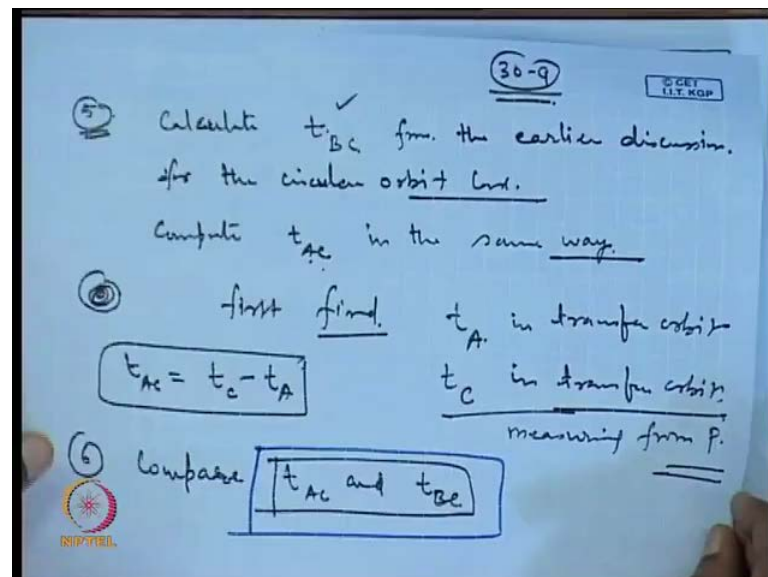 30-9
© CET
I.I.T. KGP
5 Calculate t_BC from the earlier discussion.
for the circular orbit
Compute t_AC in the same way.
first find. t_A. in transfer orbit
t_AC = t_C - t_A
t_C in transfer orbit.
measuring from P.
6 Compare t_AC and t_BC
NPTEL